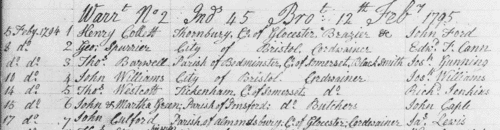 Warr.t No 2 Ind.s 45 Bro.t 12th Feb.y 1795
5 Feby 1794 1 Henry Collett Thornbury, C. of Glocester Brazier & John Ford
8 do 2 Geo. Spurrier City of Bristol Cordwainer Edw.d T. Cann
do do 3 Tho.s Barwell Parish of Bedminster, C. of Somerset, Black Smith Jos. Gunning
10 do 4 John Williams City of Bristol Cordwainer Jos. Williams
14 do 5 Tho.s Westcott Tickenham, C. of Somerset, do Rich.d Jenkins
16 do 6 John & Martha Green, Parish of Do Butchers John Caple
17 do 7 John Culford, Parish of Almondsbury, C. of Glocester, Cordwainer Ja.s Lewis